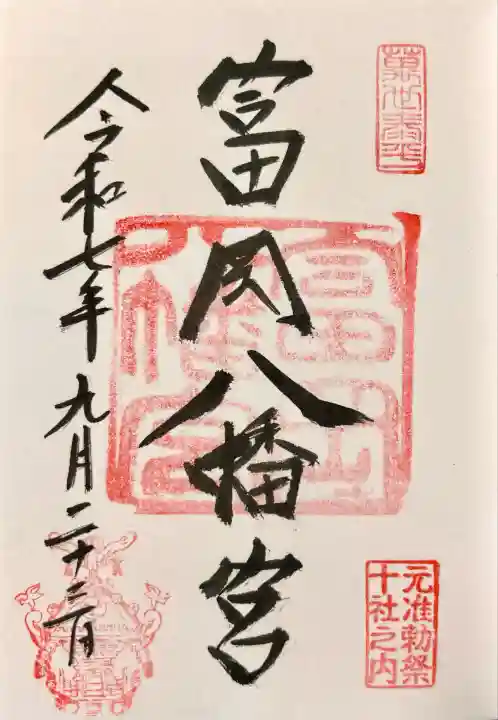 萬世泰平
富岡八幡宮
元准勅祭
十社之内
令和七年九月二十三日